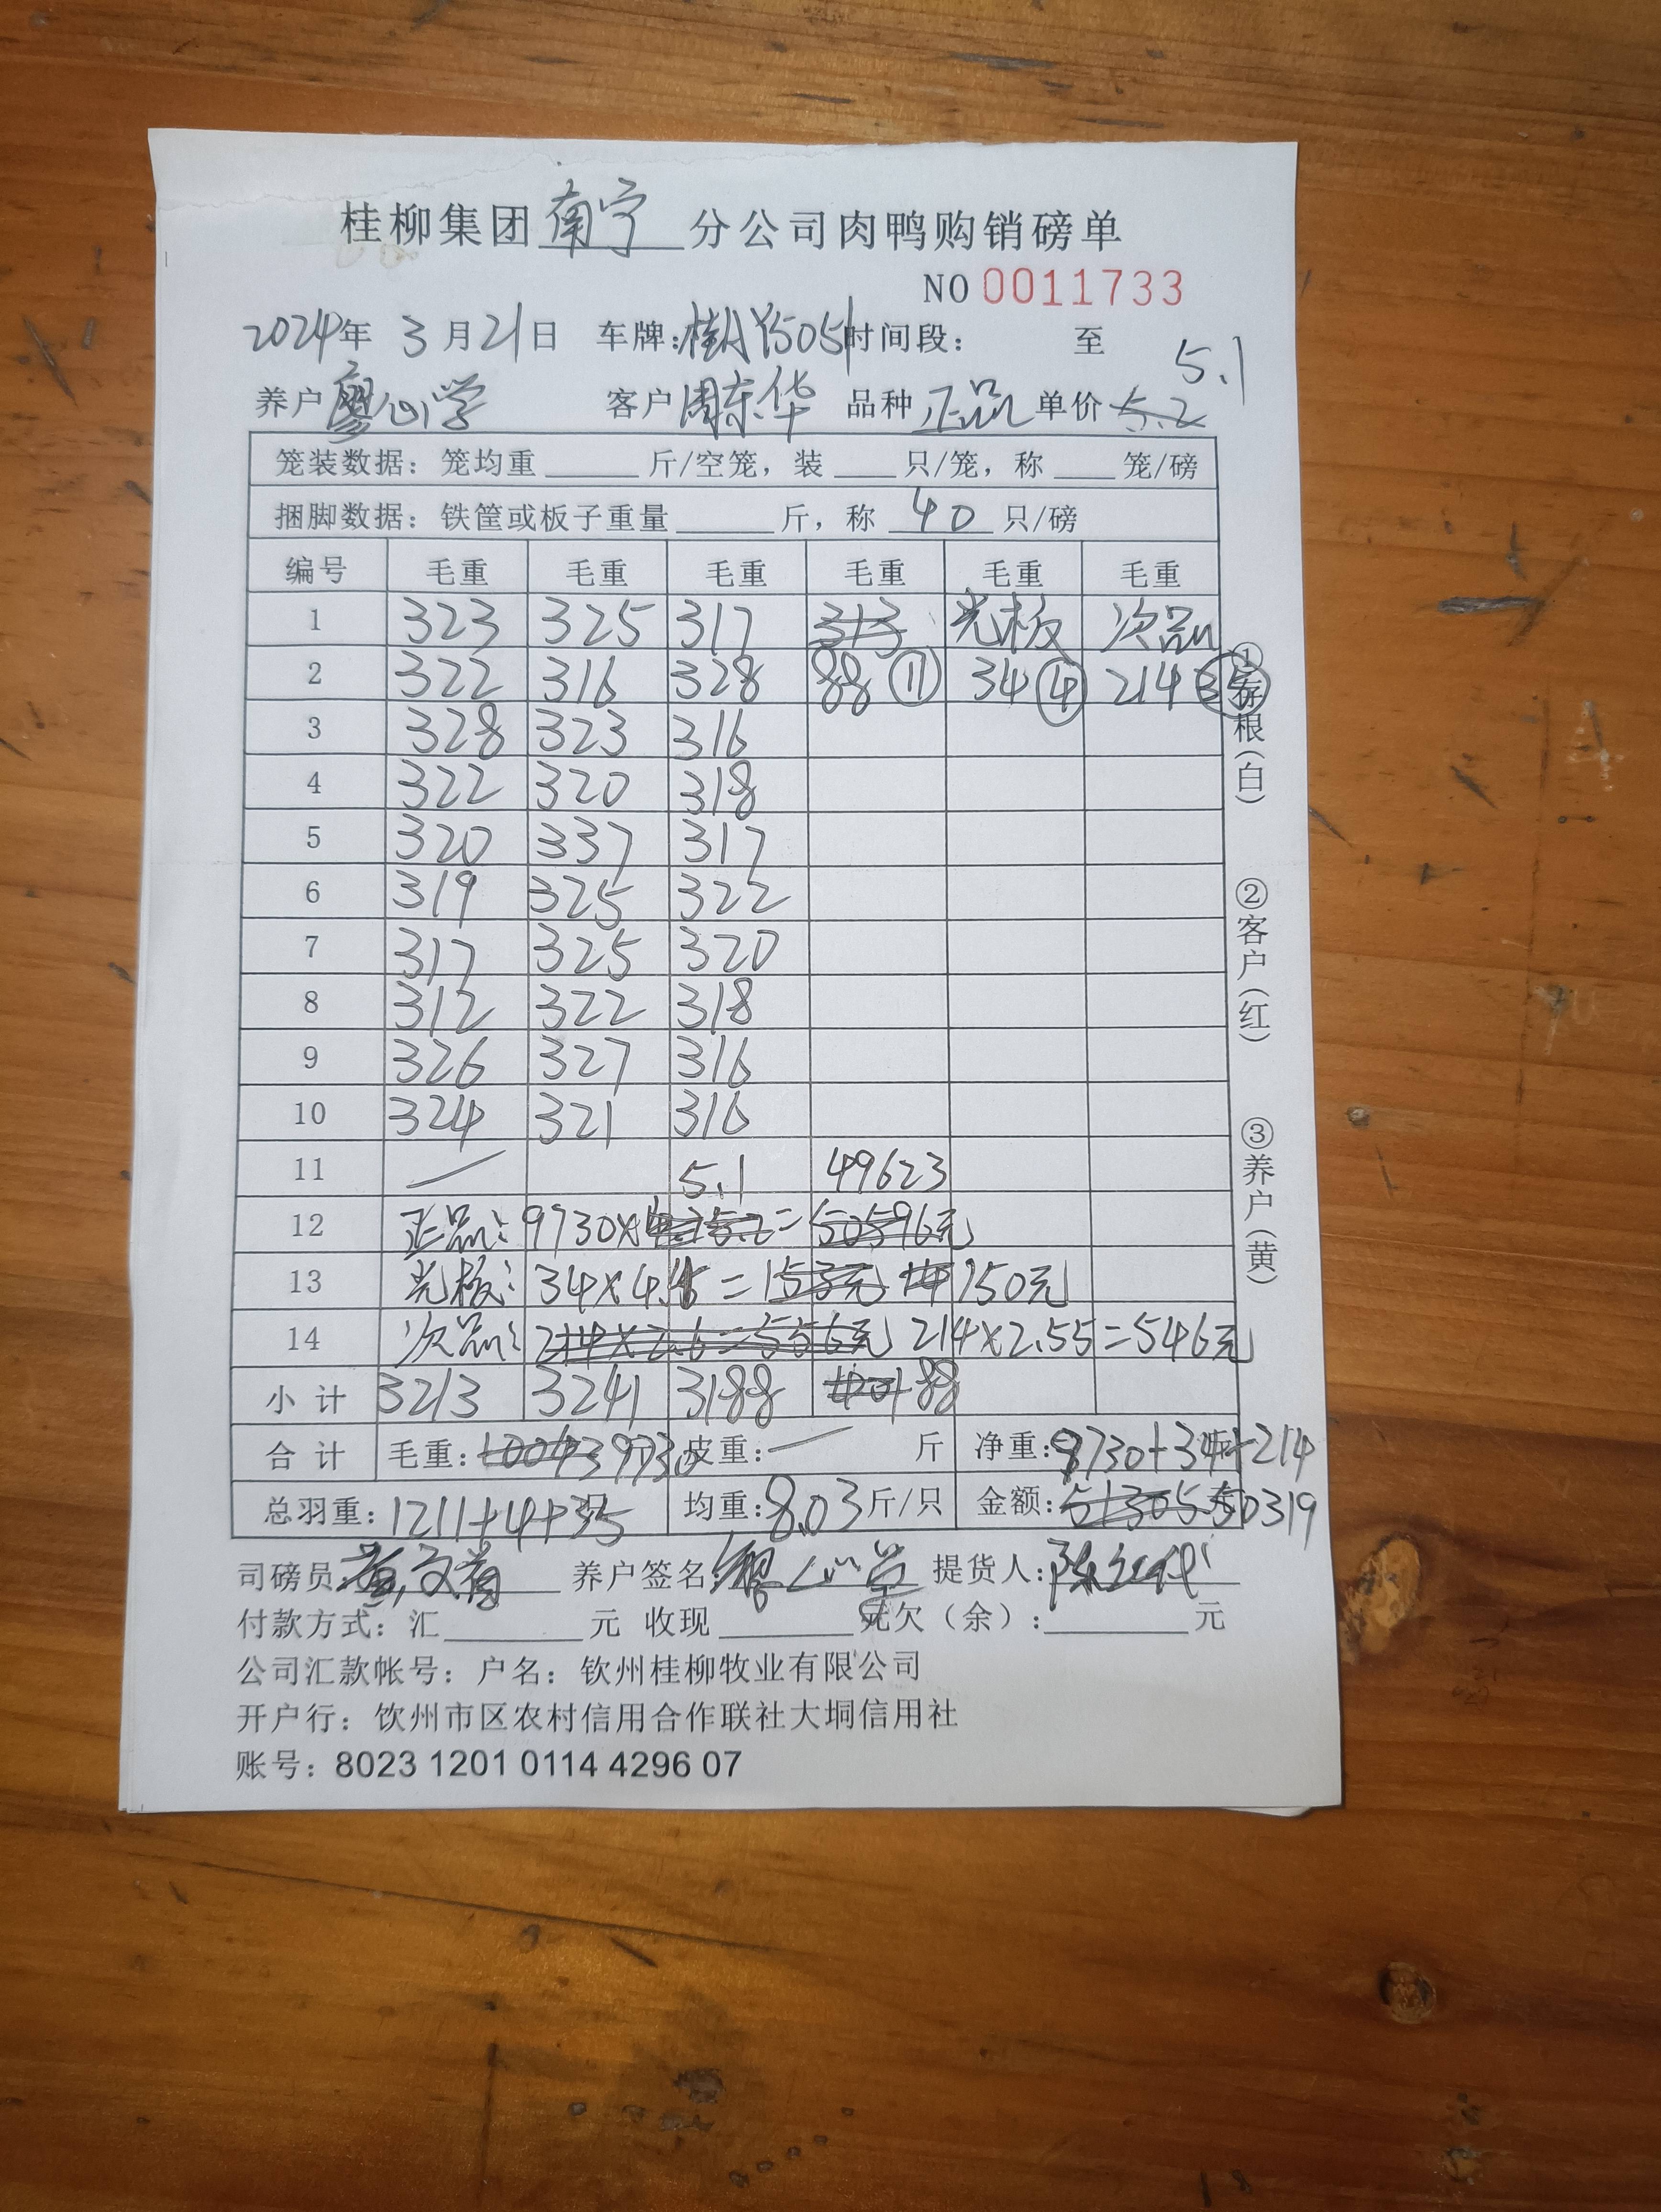 桂柳集团南宁分公司肉鸭购销磅单
NO 0011733
2024年 3月21日 车牌:桂AY5051时间段: 至
5.1
养户廖心学 客户周东华 品种正品 单价5.2
笼装数据: 笼均重 斤/空笼, 装 只/笼, 称 笼/磅
捆脚数据: 铁筐或板子重量 斤, 称 40 只/磅
编号 毛重 毛重 毛重 毛重 毛重 毛重
1 323 325 317 313 光板 次品
2 322 316 328 88 ⑪ 34 ④ 214 35
3 328 323 316
4 322 320 318
5 320 337 317
6 319 325 322
7 317 325 320
8 312 322 318
9 326 327 316
10 324 321 316
11 5.1 49623
12 正品: 9730× 5.2=50596元
13 光板: 34×4.4=153元 150元
14 次品: 214×2.6=556元 214×2.55=546元
小计 3213 3241 3188 88
合计 毛重: 10043 9730 皮重: 斤 净重: 9730+34+214
总羽重: 1211+4+35 均重: 8.03斤/只 金额: 51305 50319
司磅员: 养户签名: 提货人:
付款方式: 汇 元 收现 元欠(余): 元
公司汇款帐号: 户名: 钦州桂柳牧业有限公司
开户行: 饮州市区农村信用合作联社大垌信用社
账号: 8023 1201 0114 4296 07
①存根(白)
②客户(红)
③养户(黄)